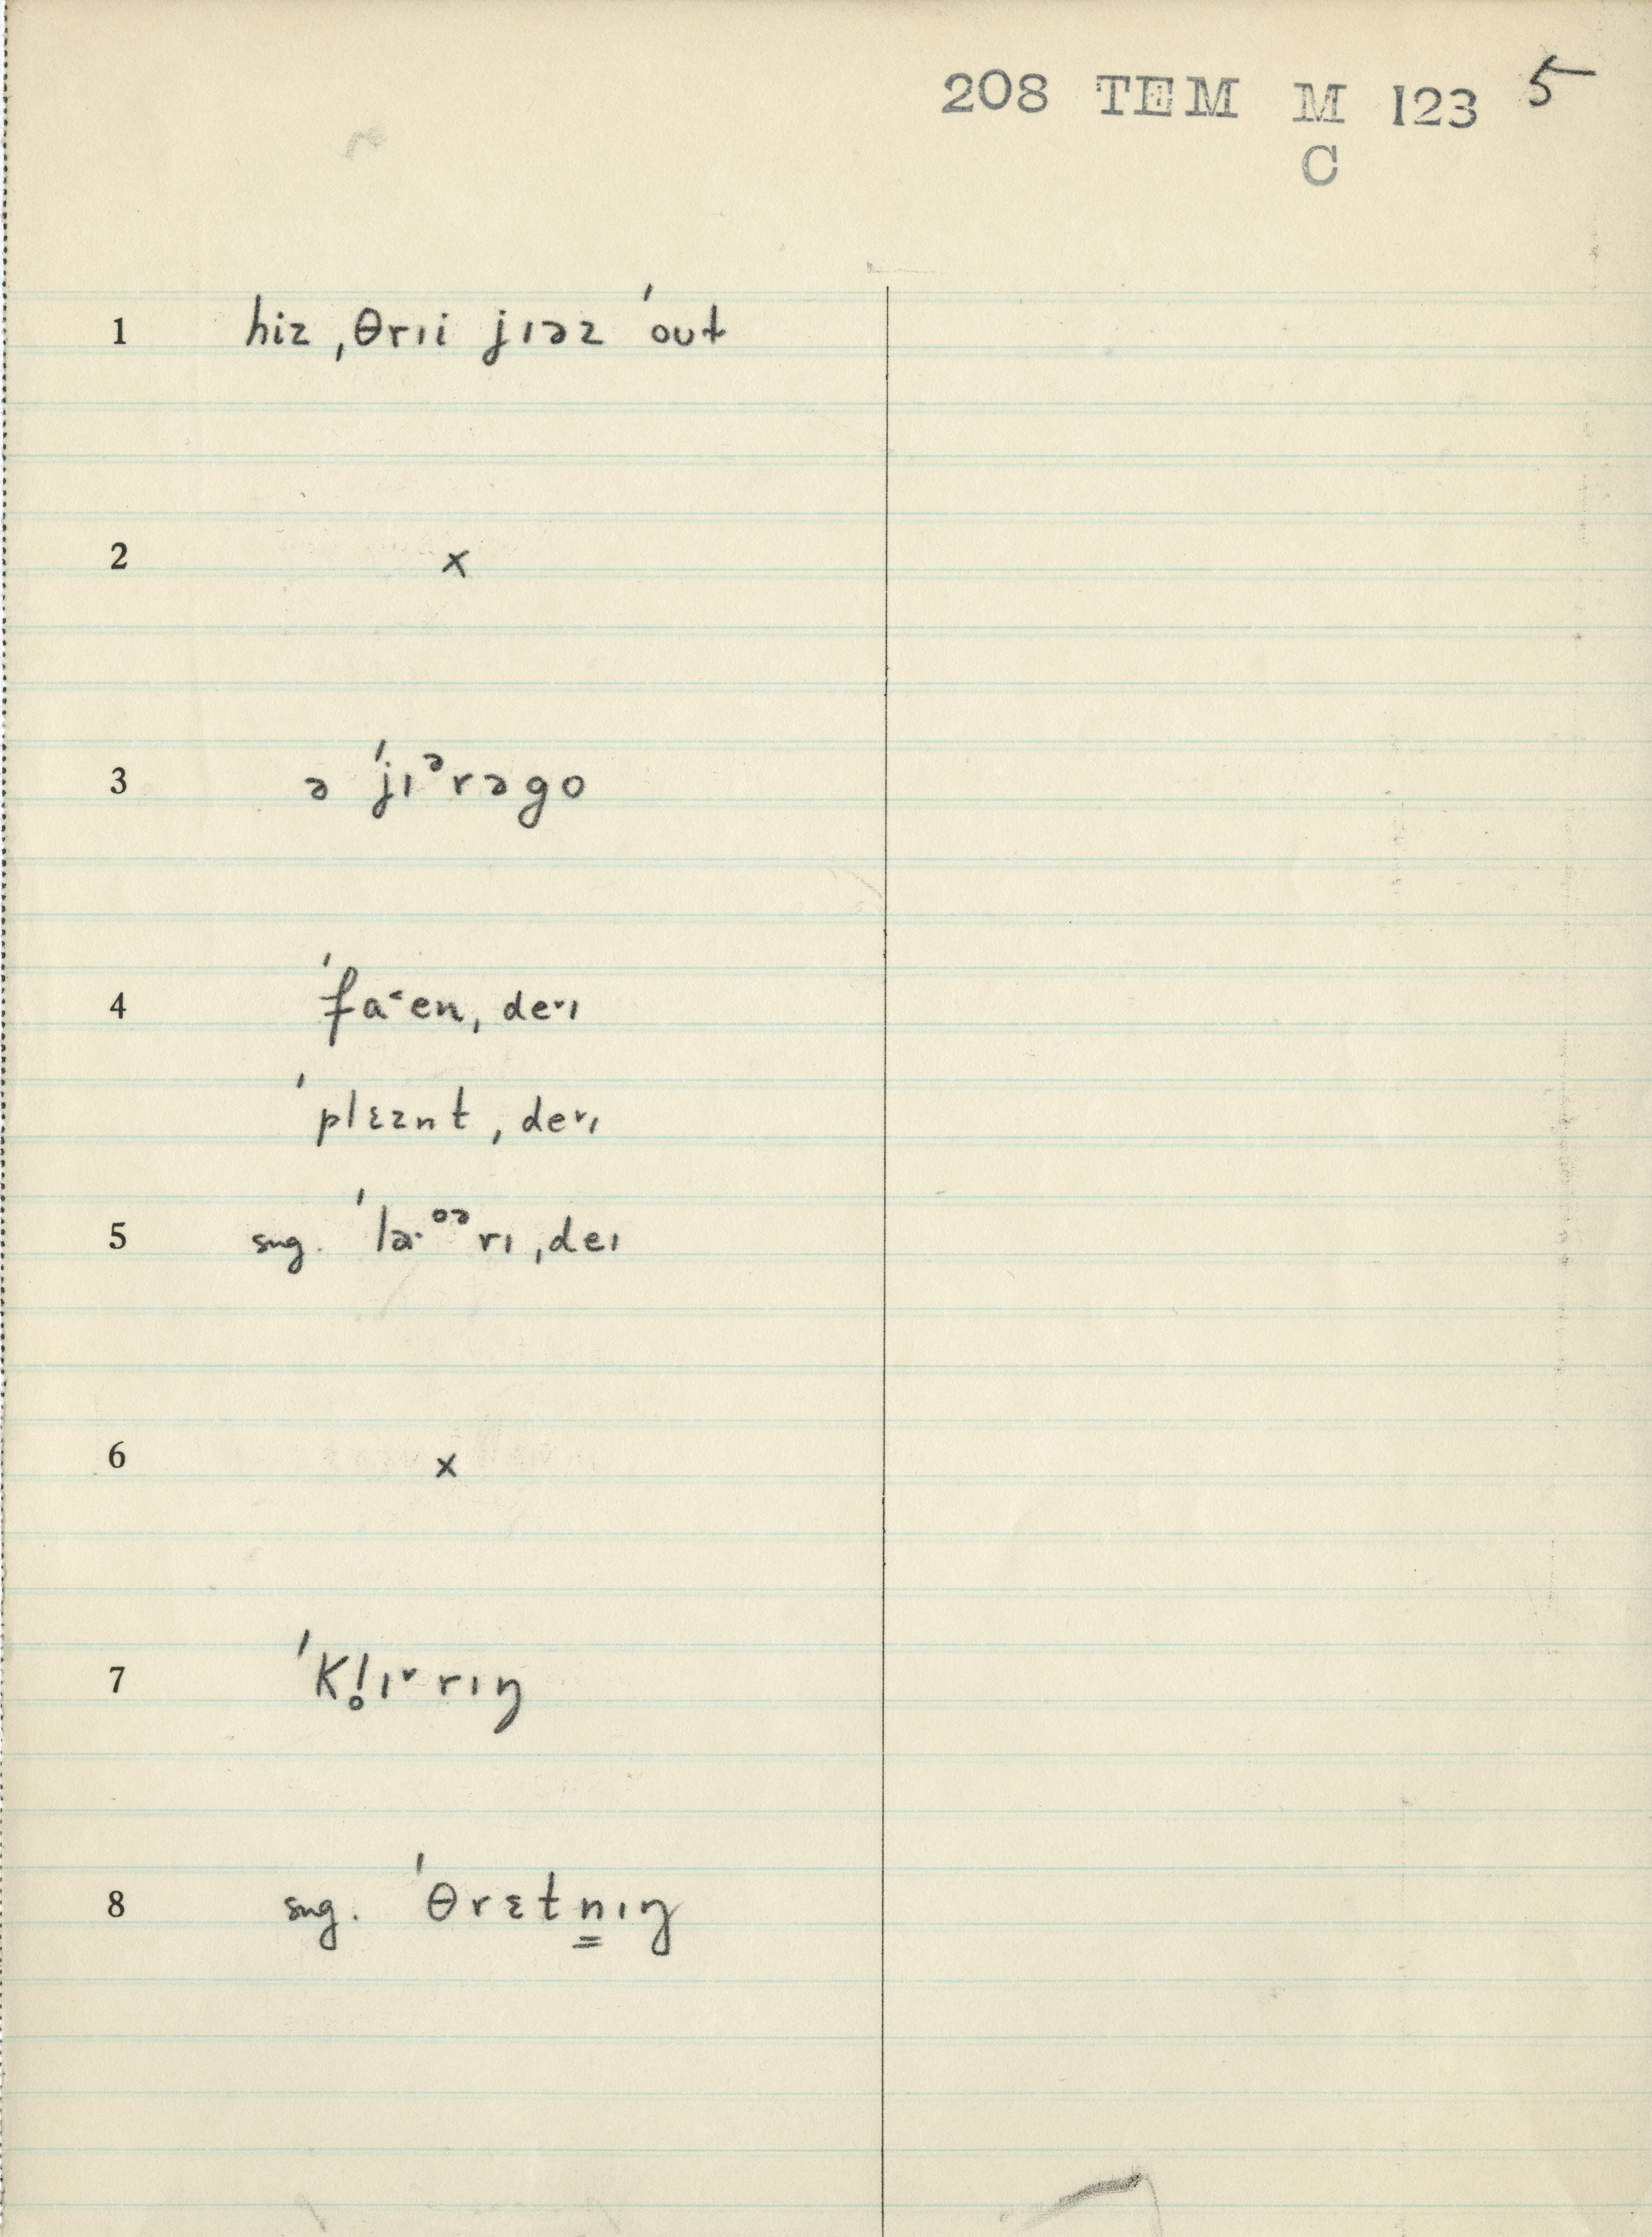 208 TEM M 123 5
C
1 hiz ˌθrɪi jɪəz ˈout
2 x
3 ə ˈjɪᵊrəgo
4 ˈfa˂en ˌde˅ɪ
ˈplɛznt ˌde˅ɪ
5 sug. ˈlɑ·ᵒᵊrɪ ˌdeɪ
6 x
7 ˈkl̥ɪ˅rɪŋ
8 sug. ˈθrɛtn̳ɪŋ